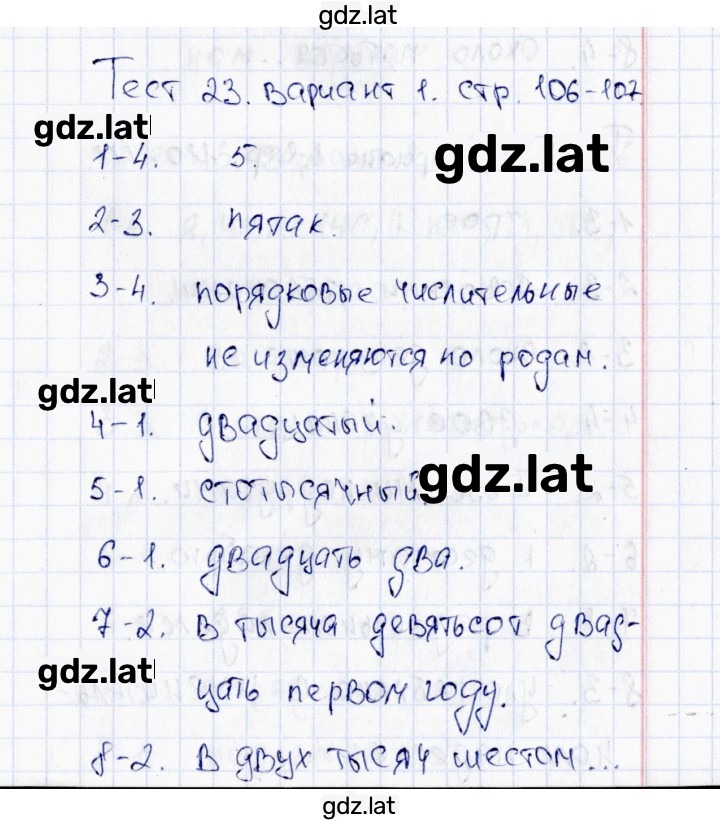 gdz.lat
Тест 23. Вариант 1. стр. 106-107
gdz.lat
1-4. 5.
gdz.lat
2-3. пятак.
3-4. порядковые числительные
не изменяются по родам.
gdz.lat
4-1. двадцатый.
5-1. стотысячный.
gdz.lat
6-1. двадцать два.
7-2. в тысяча девятьсот двад-
gdz.lat
цать первом году.
8-2. в двух тысяч шестом...
gdz.lat